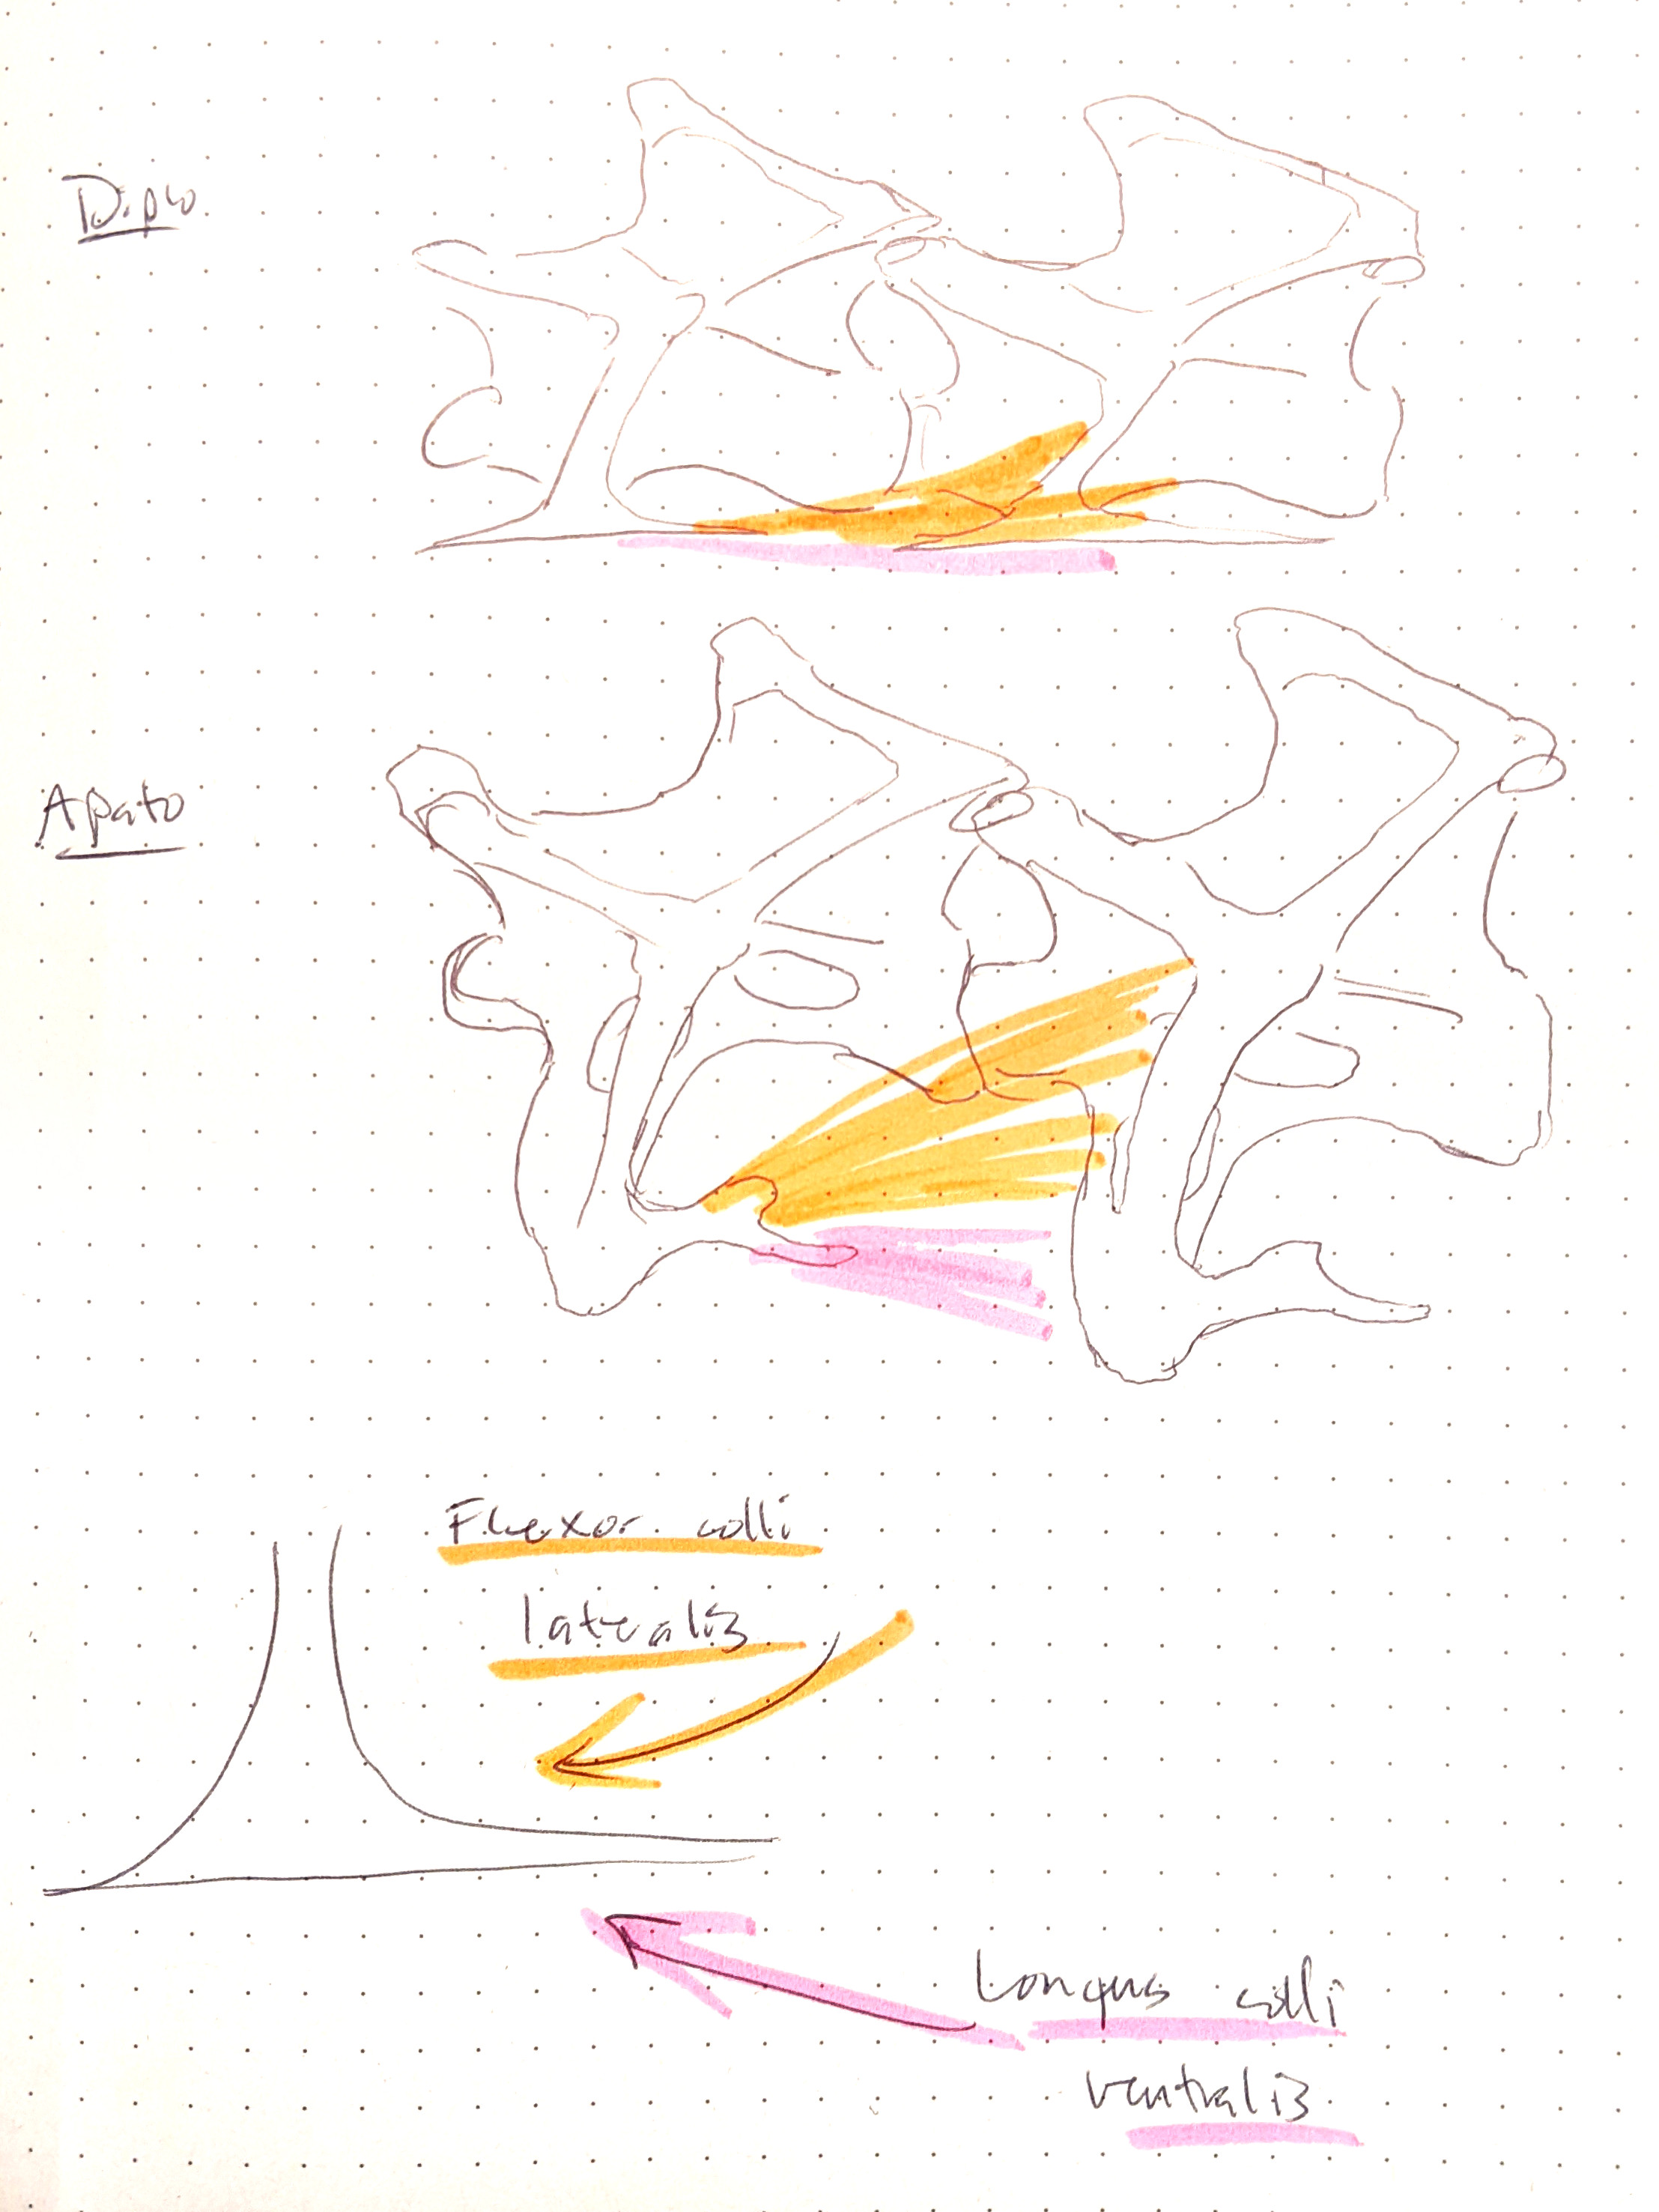 Diplo
Apato
Flexor colli
lateralis
Longus colli
ventralis